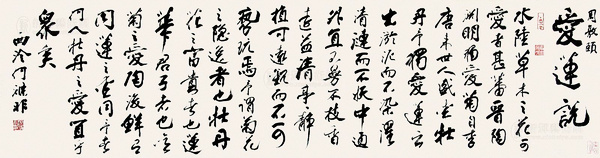 周敦頤
愛蓮說
水陸草木之花可
愛者甚蕃晉陶
淵明獨愛菊自李
唐來世人盛愛牡
丹予獨愛蓮之
出淤泥而不染濯
清漣而不妖中通
外直不蔓不枝香
遠益清亭亭靜
植可遠觀而不可
褻玩焉予謂菊花
之隱逸者也牡丹
花之富貴者也蓮
花君子者也噫
菊之愛陶後鮮有
聞蓮之愛同予者
何人牡丹之愛宜乎
眾矣
西泠何